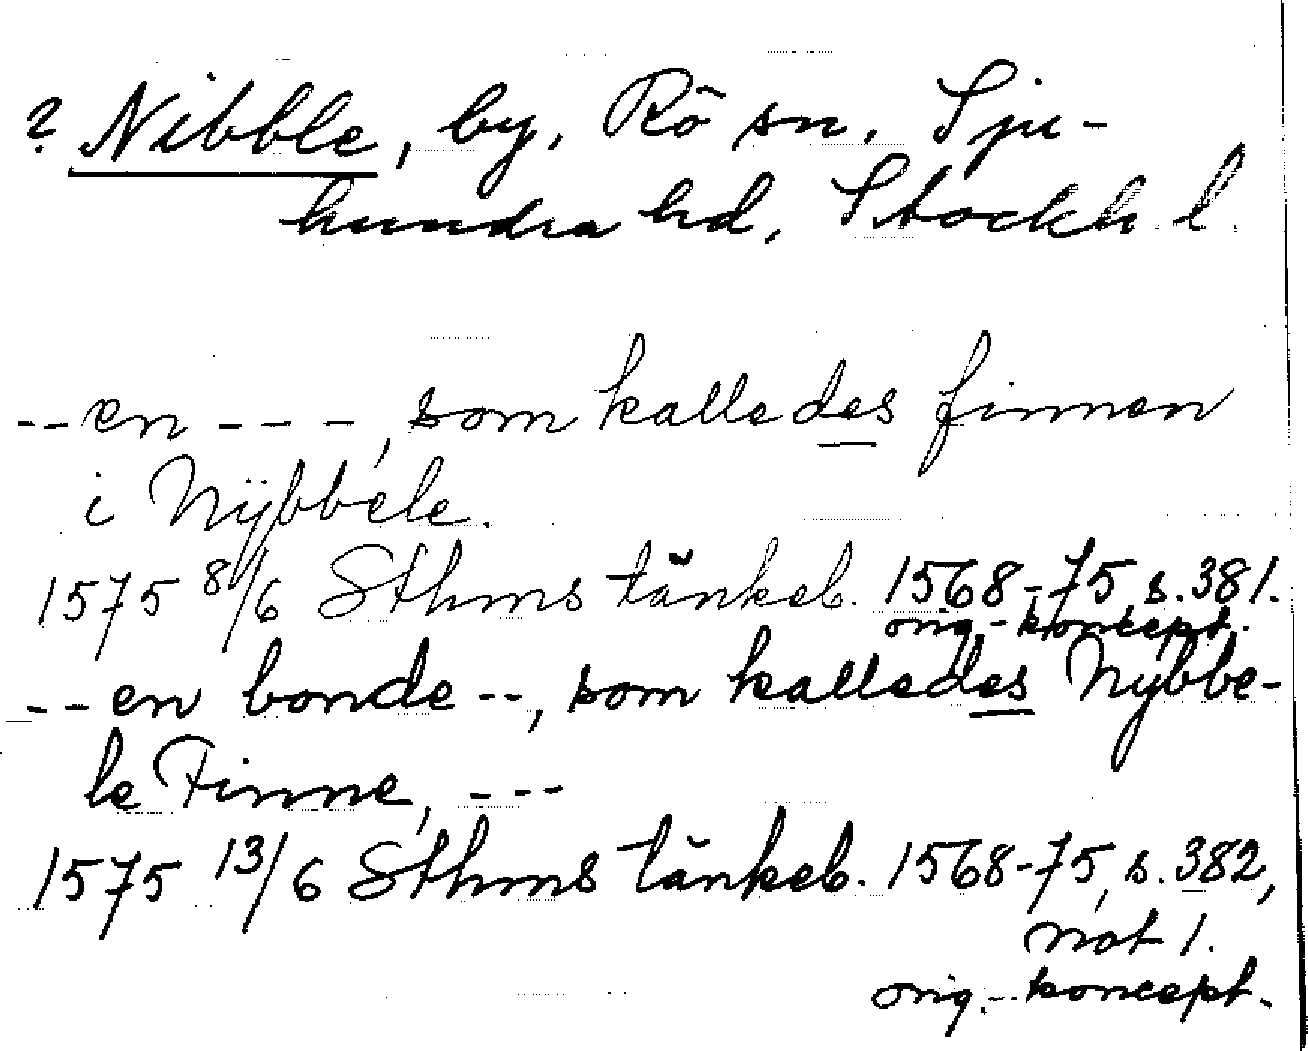 ? Nibble, by, Rö sn. Sju-
hundra hd, Stockh. l.
-- en ---, som kalledes finnen
i Nÿbbele.
1575 8/6 Sthms tänkeb. 1568-75, s. 381.
orig.-koncept.
-- en bonde --, som kalledes Nybbe-
le Finne, ---
1575 13/6 Sthms tänkeb. 1568-75, s. 382,
not 1.
orig.-koncept.